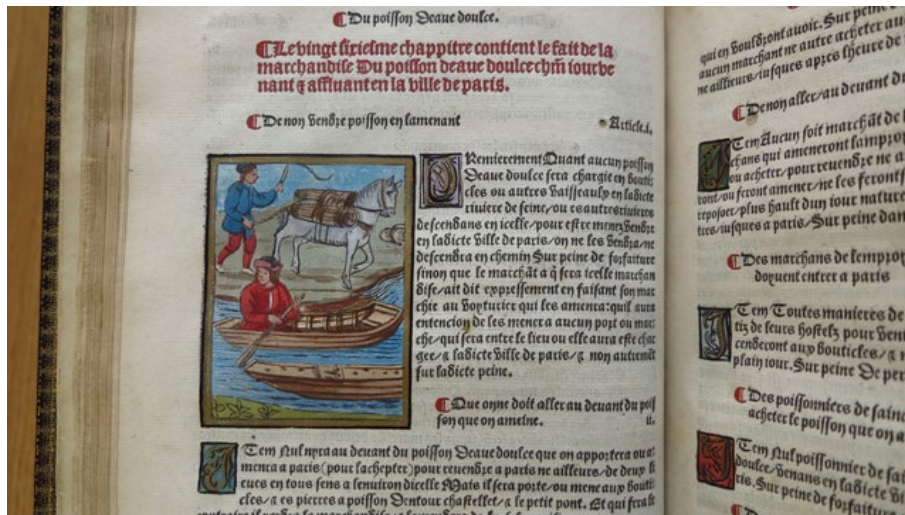 Du poisson Deaue doulce.
Le vingt sixiesme chappitre contient le fait de la
marchandise Du poisson deaue doulce chm̄ iour ve
nant ⁊ affluant en la ville de paris.
De non vendre poisson en lamenant
Article.i.
PRemierement Quant aucun poisson
Deaue doulce sera chargie en bouti
cles ou autres vaisseaulx en ladicte
riuiere de seine/ou es autres riuieres
descendans en icelle/pour estre menez vendre
en ladicte ville de paris/on ne les vendra/ne
descendra en chemin Sur peine de forfaiture
sinon que le marchāt a q̄ sera icelle marchan
dise/ait dit expressement en faisant son mar
chie au voyturier qui les amenra:quil aura
entencion de les mener a aucun port ou mar
che/qui sera entre le lieu ou elle aura este char
gee/⁊ ladicte ville de paris/⁊ non autremēt
sur ladicte peine.
Que on ne doit aller au deuant du pois
son que on ameine.
ii.
ITem Nul nyra au deuant du poisson Deaue doulce que on apportera ou a
menra a paris (pour lachepter) pour reuendre a paris ne ailleurs/de deux li
eues en tous sens a lenuiron dicelle Mais il sera porte/ou mene aux bouti
cles/⁊ es pierres a poisson Dentour chastellet/⁊ le petit pont. Et qui fera le
qui en vouldront auoir. Sur peine
aucun marchant ne autre acheter au
ne ailleurs/iusques apres lheure de
De non aller/au deuant du
ITem Aucun soit marchāt de
chans qui ameneront lamproy
ou acheter/pour reuendre ne a
ront/ou feront amener/ne les feront
reposer/plus hault dun iour nature
tres/iusques a paris/Sur peine dan
Des marchans de lemproy
doyuent entrer a paris
ITem Toutes manieres de
tiz de leurs hostelz pour ven
cenderont aux bouticles/⁊
plain iour. Sur peine De per
Des poissonniers de
acheter le poisson que on a
ITem Nul poissonnier de
doulce/venans en ladicte vi
ris. Sur peine de forfaiture